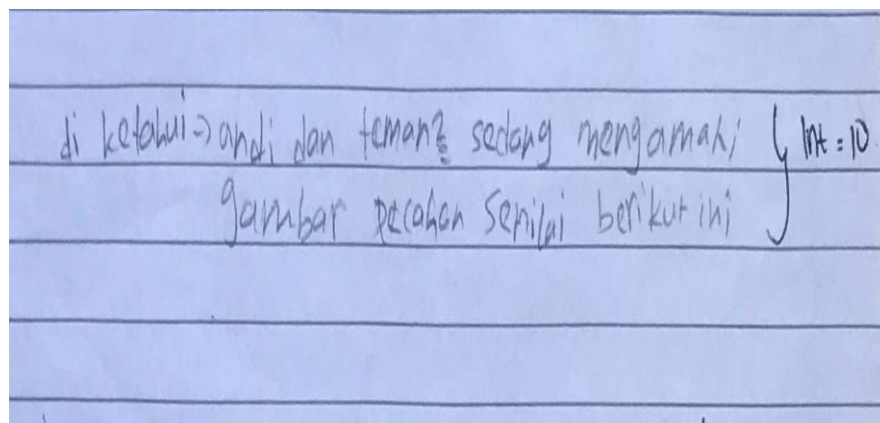 di ketahui => andi dan teman2 sedang mengamati } Int = 10
gambar pecahan senilai berikut ini